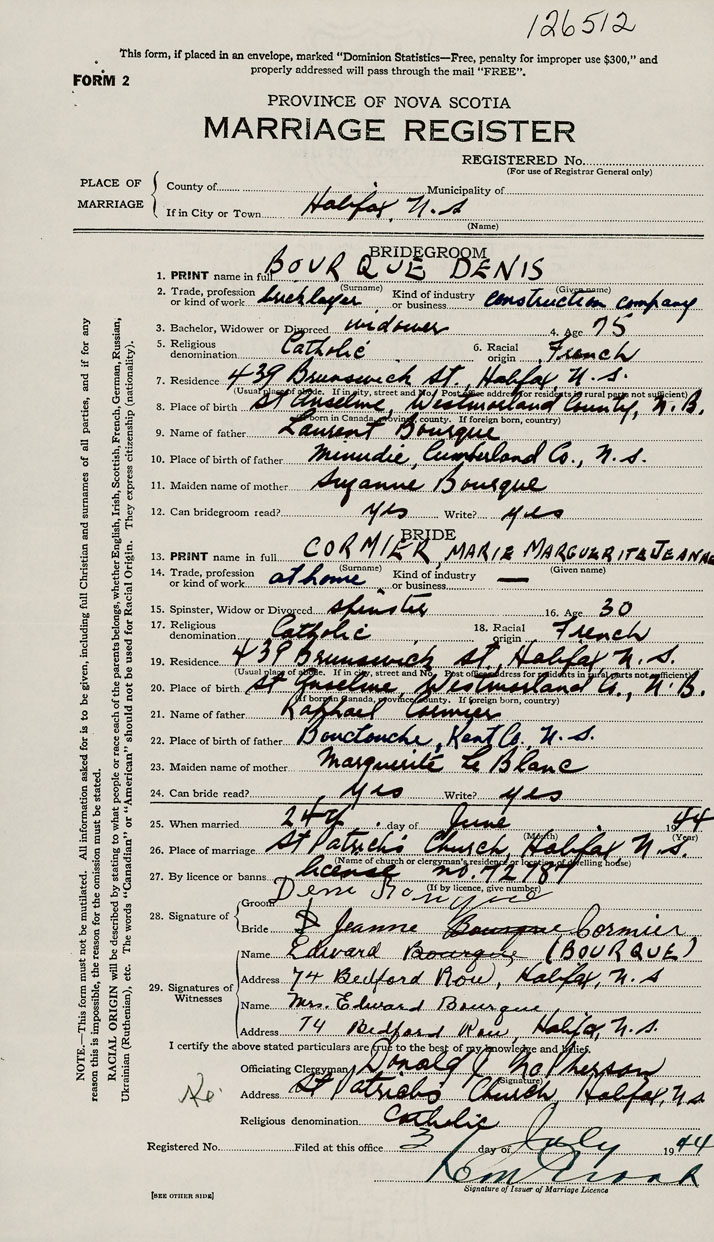 126512
This form, if placed in an envelope, marked "Dominion Statistics—Free, penalty for improper use $300," and
properly addressed will pass through the mail "FREE".
FORM 2
PROVINCE OF NOVA SCOTIA
MARRIAGE REGISTER
REGISTERED No.
(For use of Registrar General only)
PLACE OF MARRIAGE
County of Municipality of
If in City or Town Halifax, N.S
(Name)
BRIDEGROOM
1. PRINT name in full BOURQUE DENIS
(Surname) (Given name)
2. Trade, profession or kind of work bricklayer Kind of industry or business construction company
3. Bachelor, Widower or Divorced widower 4. Age 75
5. Religious denomination Catholic 6. Racial origin French
7. Residence 439 Brunswick St., Halifax, N.S.
(Usual place of abode. If in city, street and No. Post office address for residents in rural parts not sufficient)
8. Place of birth St Anselme, Westmorland County, N.B.
(If born in Canada, province, county. If foreign born, country)
9. Name of father Laurent Bourque
10. Place of birth of father Minudie, Cumberland Co., N.S.
11. Maiden name of mother Suzanne Bourque
12. Can bridegroom read? yes Write? yes
BRIDE
13. PRINT name in full CORMIER, MARIE MARGUERITE JEANNE
(Surname) (Given name)
14. Trade, profession or kind of work at home Kind of industry or business —
15. Spinster, Widow or Divorced spinster 16. Age 30
17. Religious denomination Catholic 18. Racial origin French
19. Residence 439 Brunswick St., Halifax N.S.
(Usual place of abode. If in city, street and No. Post office address for residents in rural parts not sufficient)
20. Place of birth St Anselme, Westmorland Co., N.B.
(If born in Canada, province, county. If foreign born, country)
21. Name of father Raphael Cormier
22. Place of birth of father Bouctouche, Kent Co., N.S.
23. Maiden name of mother Marguerite Le Blanc
24. Can bride read? yes Write? yes
25. When married day of June 1944
(Month) (Year)
26. Place of marriage St Patrick's Church, Halifax N.S.
(Name of church or clergyman's residence or location of dwelling house)
27. By licence or banns license no. 72787
(If by licence, give number)
28. Signature of
Groom
Bride Jeanne Bourque Cormier
29. Signatures of Witnesses
Name Edward Bourque (BOURQUE)
Address 74 Bedford Row, Halifax, N.S
Name Mrs. Edward Bourque
Address 74 Bedford Row, Halifax, N.S.
I certify the above stated particulars are true to the best of my knowledge and belief.
Officiating Clergyman Donald
(Signature)
Address St Patrick's Church, Halifax, N.S
Religious denomination Catholic
Registered No. Filed at this office 3 day of July 1944
Signature of Issuer of Marriage Licence
[SEE OTHER SIDE]
NOTE.—This form must not be mutilated. All information asked for is to be given, including full Christian and surnames of all parties, and if for any
reason this is impossible, the reason for the omission must be stated.
RACIAL ORIGIN will be described by stating to what people or race each of the parents belongs, whether English, Irish, Scottish, French, German, Russian,
Ukrainian (Ruthenian), etc. The words "Canadian" or "American" should not be used for Racial Origin. They express citizenship (nationality).